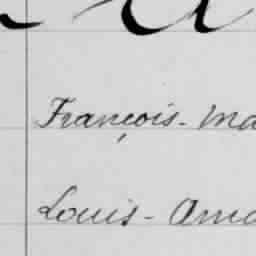 François - Ma
Louis - Ama